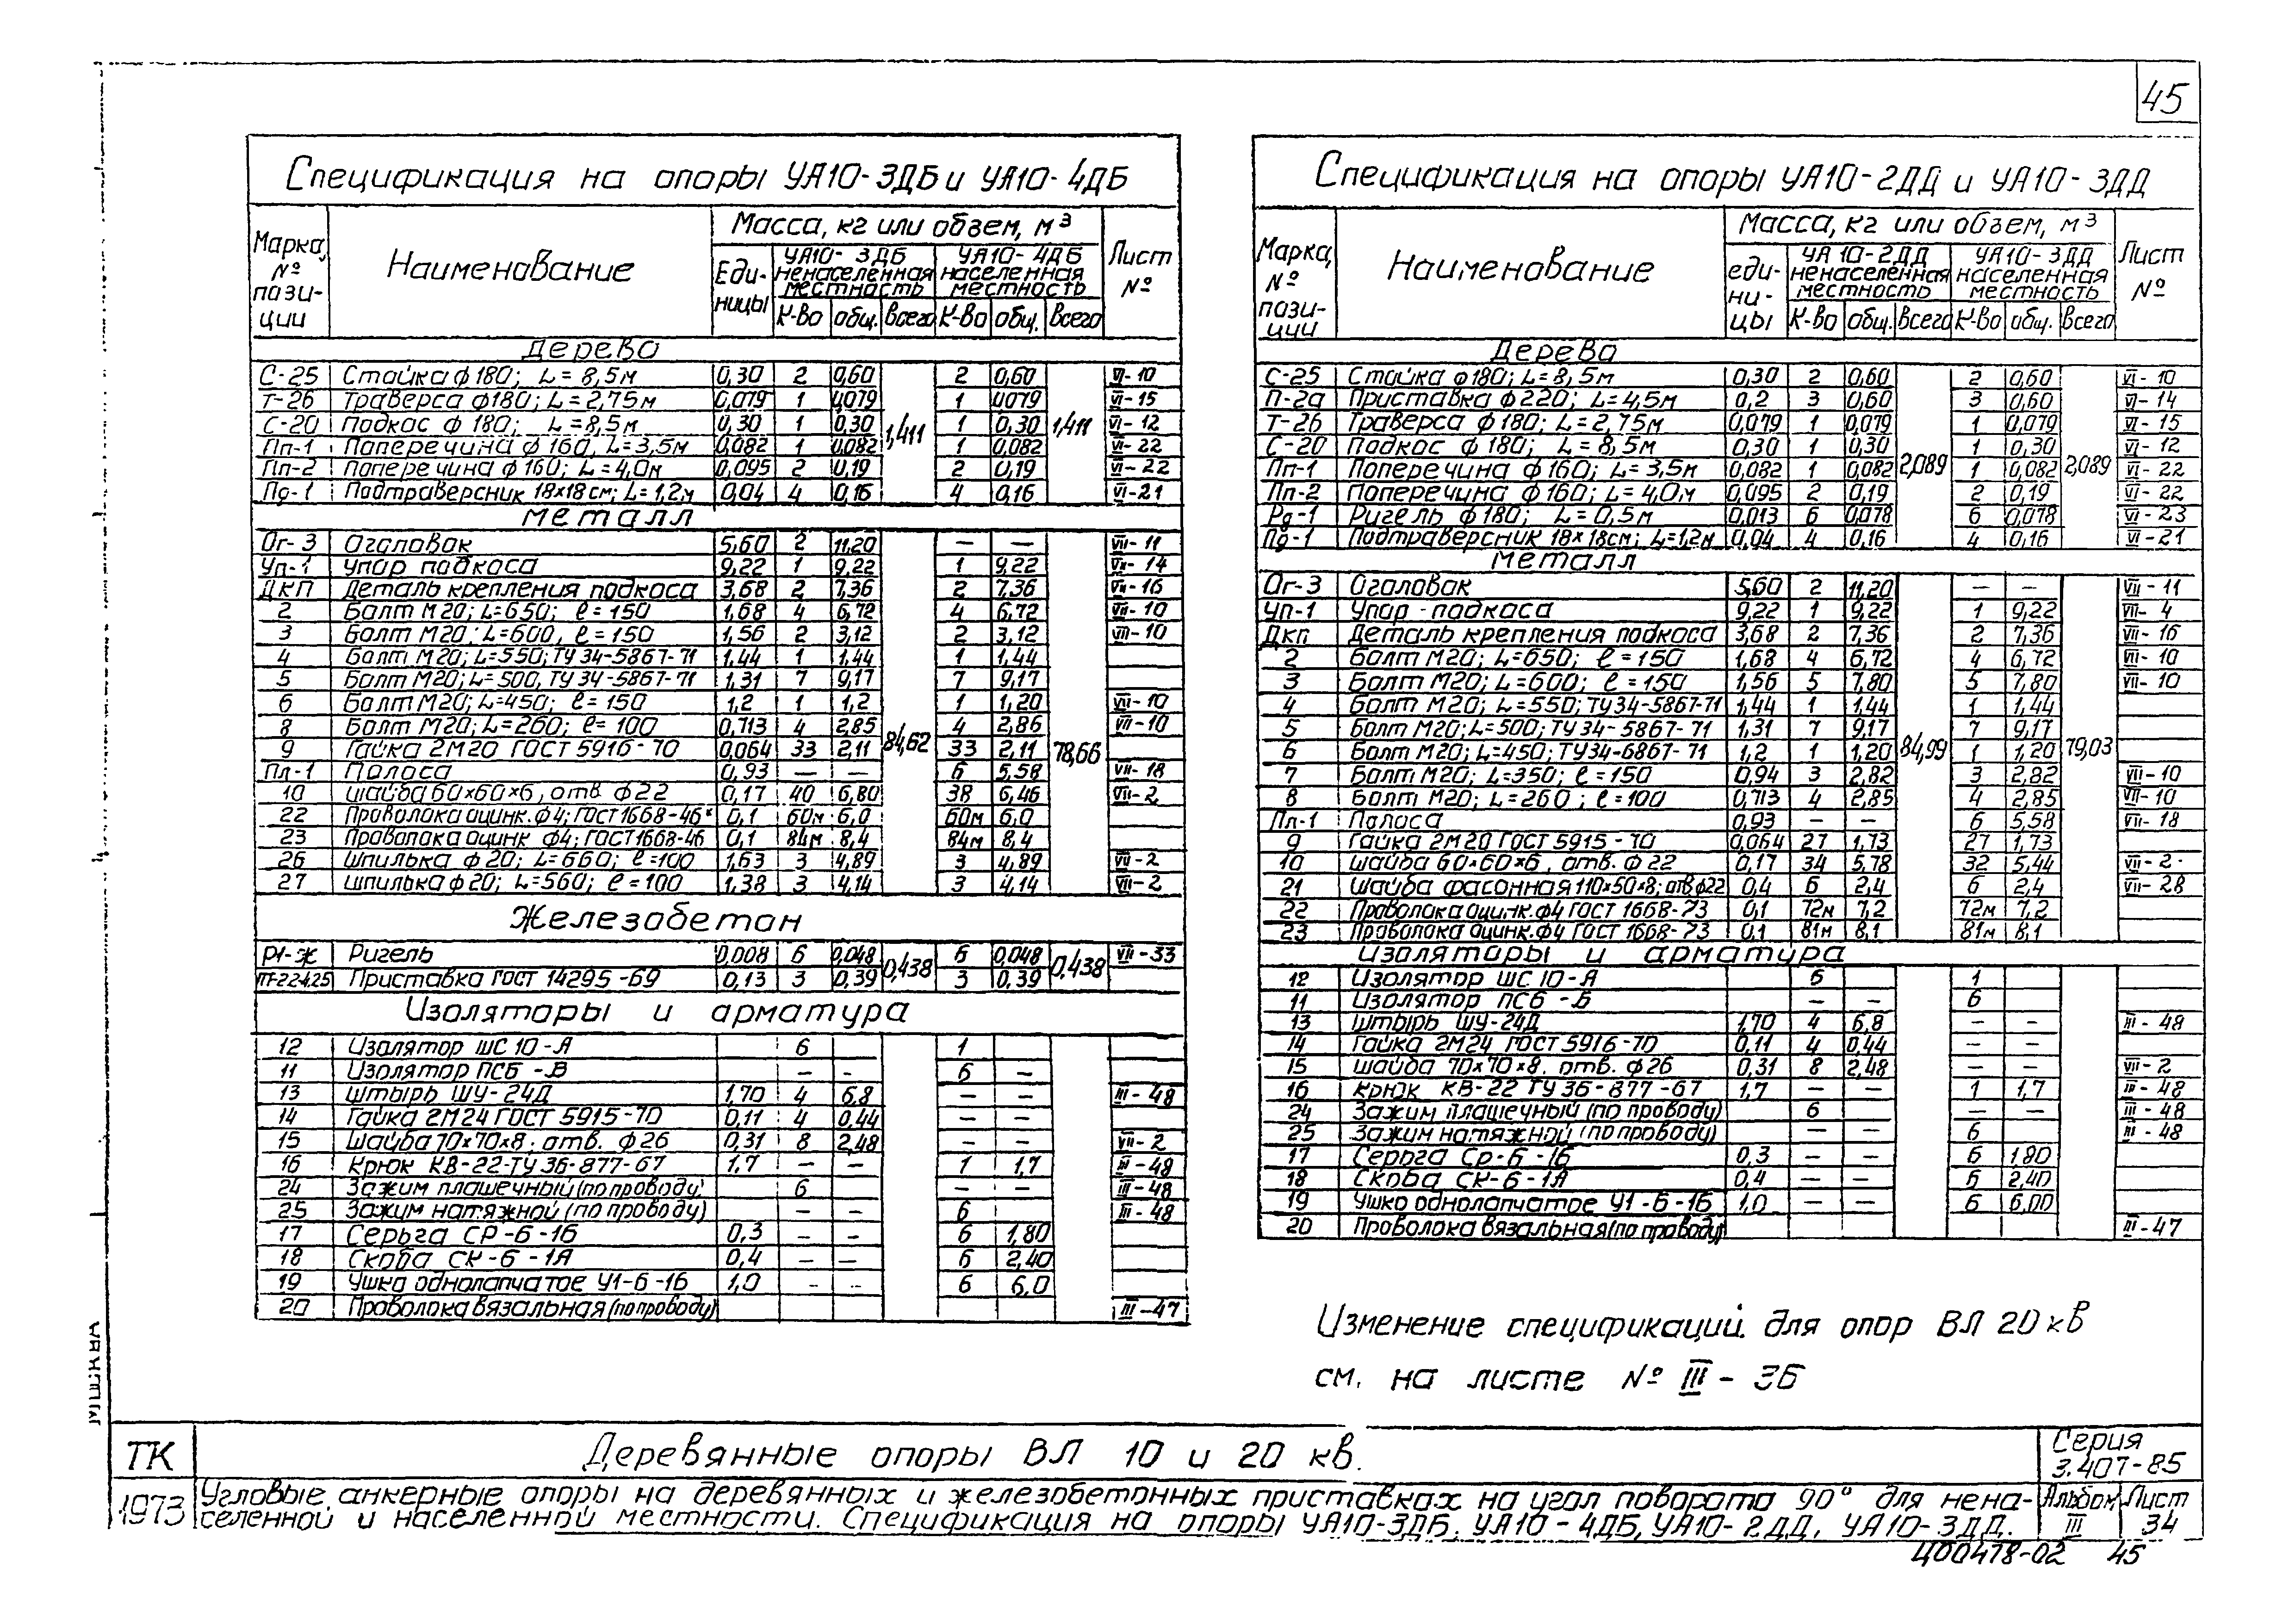 45
Спецификация на опоры УА10-3ДБ и УА10-4ДБ
Марка, № пози-ции | Наименование | Масса, кг или объем, м³ | Лист №
Еди-ницы | УА10-3ДБ ненаселенная местность | УА10-4ДБ населенная местность
К-во | общ. | Всего | К-во | общ. | Всего
Дерево
С-25 Стойка ф180; L=8,5м 0,30 2 0,60 2 0,60 VI-10
Т-26 Траверса ф180; L=2,75м 0,079 1 0,079 1 0,079 VI-15
С-20 Подкос ф 180; L=8,5м 0,30 1 0,30 1,411 1 0,30 1,411 VI-12
Пп-1 Поперечина ф 160, L=3,5м 0,082 1 0,082 1 0,082 VI-22
Пп-2 Поперечина ф 160; L=4,0м 0,095 2 0,19 2 0,19 VI-22
Пд-1 Подтраверсник 18х18 см; L=1,2м 0,04 4 0,16 4 0,16 VI-21
Металл
Ог-3 Оголовок 5,60 2 11,20 — — VII-11
Уп-1 Упор подкоса 9,22 1 9,22 1 9,22 VII-14
ДКП Деталь крепления подкоса 3,68 2 7,36 2 7,36 VII-16
2 Болт М20; L=650; ℓ=150 1,68 4 6,72 4 6,72 VII-10
3 Болт М20; L=600, ℓ=150 1,56 2 3,12 2 3,12 VII-10
4 Болт М20; L=550; ТУ 34-5867-71 1,44 1 1,44 1 1,44
5 Болт М20; L=500, ТУ 34-5867-71 1,31 7 9,17 7 9,17
6 Болт М20; L=450; ℓ=150 1,2 1 1,2 1 1,20 VII-10
8 Болт М20; L=260; ℓ=100 0,713 4 2,85 4 2,86 VII-10
9 Гайка 2М20 ГОСТ 5916-70 0,064 33 2,11 84,62 33 2,11 78,66
Пл-1 Полоса 0,93 — — 6 5,58 VII-18
10 Шайба 60х60х6, отв. ф22 0,17 40 6,80 38 6,46 VII-2
22 Проволока оцинк. ф4; ГОСТ 1668-46* 0,1 60м 6,0 60м 6,0
23 Проволока оцинк ф4; ГОСТ 1668-46 0,1 84м 8,4 84м 8,4
26 Шпилька ф20; L=660; ℓ=100 1,63 3 4,89 3 4,89 VII-2
27 Шпилька ф20; L=560; ℓ=100 1,38 3 4,14 3 4,14 VII-2
Железобетон
Р1-Ж Ригель 0,008 6 0,048 0,438 6 0,048 0,438 VII-33
ПТ-2,2-4,25 Приставка ГОСТ 14295-69 0,13 3 0,39 3 0,39
Изоляторы и арматура
12 Изолятор ШС 10-А 6 1
11 Изолятор ПС6-В — — 6 —
13 Штырь ШУ-24Д 1,70 4 6,8 — — III-48
14 Гайка 2М24 ГОСТ 5915-70 0,11 4 0,44 — —
15 Шайба 70х70х8. отв. ф26 0,31 8 2,48 — — VII-2
16 Крюк КВ-22-ТУ 36-877-67 1,7 — — 1 1,7 III-48
24 Зажим плашечный (по проводу) 6 — — III-48
25 Зажим натяжной (по проводу) — — 6 III-48
17 Серьга СР-6-16 0,3 — — 6 1,80
18 Скоба СК-6-1А 0,4 — — 6 2,40
19 Ушко однолапчатое У1-6-16 1,0 — — 6 6,0
20 Проволока вязальная (по проводу) III-47
Спецификация на опоры УА10-2ДД и УА10-3ДД
Марка, № пози-ции | Наименование | Масса, кг или объем, м³ | Лист №
еди-ни-цы | УА 10-2ДД ненаселенная местность | УА10-3ДД населенная местность
К-во | общ. | Всего | К-во | общ. | Всего
Дерево
С-25 Стойка ф180; L=8,5м 0,30 2 0,60 2 0,60 VI-10
П-2а Приставка ф220; L=4,5м 0,2 3 0,60 3 0,60 VI-14
Т-26 Траверса ф180; L=2,75м 0,079 1 0,079 1 0,079 VI-15
С-20 Подкос ф180; L=8,5м 0,30 1 0,30 1 0,30 VI-12
Пп-1 Поперечина ф160; L=3,5м 0,082 1 0,082 2,089 1 0,082 2,089 VI-22
Пп-2 Поперечина ф160; L=4,0м 0,095 2 0,19 2 0,19 VI-22
Рд-1 Ригель ф180; L=0,5м 0,013 6 0,078 6 0,078 VI-23
Пд-1 Подтраверсник 18х18см; L=1,2м 0,04 4 0,16 4 0,16 VI-21
Металл
Ог-3 Оголовок 5,60 2 11,20 — — VII-11
Уп-1 Упор-подкоса 9,22 1 9,22 1 9,22 VII-4
Дкп Деталь крепления подкоса 3,68 2 7,36 2 7,36 VII-16
2 Болт М20; L=650; ℓ=150 1,68 4 6,72 4 6,72 VII-10
3 Болт М20; L=600; ℓ=150 1,56 5 7,80 5 7,80 VII-10
4 Болт М20; L=550; ТУ34-5867-71 1,44 1 1,44 1 1,44
5 Болт М20; L=500; ТУ34-5867-71 1,31 7 9,17 7 9,17
6 Болт М20; L=450; ТУ34-6867-71 1,2 1 1,20 84,99 1 1,20 79,03
7 Болт М20; L=350; ℓ=150 0,94 3 2,82 3 2,82 VII-10
8 Болт М20; L=260; ℓ=100 0,713 4 2,85 4 2,85 VII-10
Пл-1 Полоса 0,93 — — 6 5,58 VII-18
9 Гайка 2М20 ГОСТ 5915-70 0,064 27 1,73 27 1,73
10 Шайба 60х60х6, отв. ф22 0,17 34 5,78 32 5,44 VII-2
21 Шайба фасонная 110х50х8; отв. ф22 0,4 6 2,4 6 2,4 VII-28
22 Проволока оцинк. ф4 ГОСТ 1668-73 0,1 72м 7,2 72м 7,2
23 Проволока оцинк. ф4 ГОСТ 1668-73 0,1 81м 8,1 81м 8,1
Изоляторы и арматура
12 Изолятор ШС 10-А 6 1
11 Изолятор ПС6-Б — — 6
13 Штырь ШУ-24Д 1,70 4 6,8 — — III-48
14 Гайка 2М24 ГОСТ 5916-70 0,11 4 0,44 — —
15 Шайба 70х70х8. отв. ф26 0,31 8 2,48 — — VII-2
16 Крюк КВ-22 ТУ 36-877-67 1,7 — — 1 1,7 III-48
24 Зажим плашечный (по проводу) 6 — — III-48
25 Зажим натяжной (по проводу) — — 6 III-48
17 Серьга Ср-6-16 0,3 — — 6 1,80
18 Скоба СК-6-1А 0,4 — — 6 2,40
19 Ушко однолапчатое У1-6-16 1,0 — — 6 6,00
20 Проволока вязальная (по проводу) III-47
Изменение спецификаций для опор ВЛ 20 кВ
см. на листе № III-36
ТК
1973
Деревянные опоры ВЛ 10 и 20 кв.
Серия
3.407-85
Угловые анкерные опоры на деревянных и железобетонных приставках на угол поворота 90° для нена-
селенной и населенной местности. Спецификация на опоры УА10-3ДБ, УА10-4ДБ, УА10-2ДД, УА10-3ДД.
Альбом III
Лист 34
Ц00478-02 45